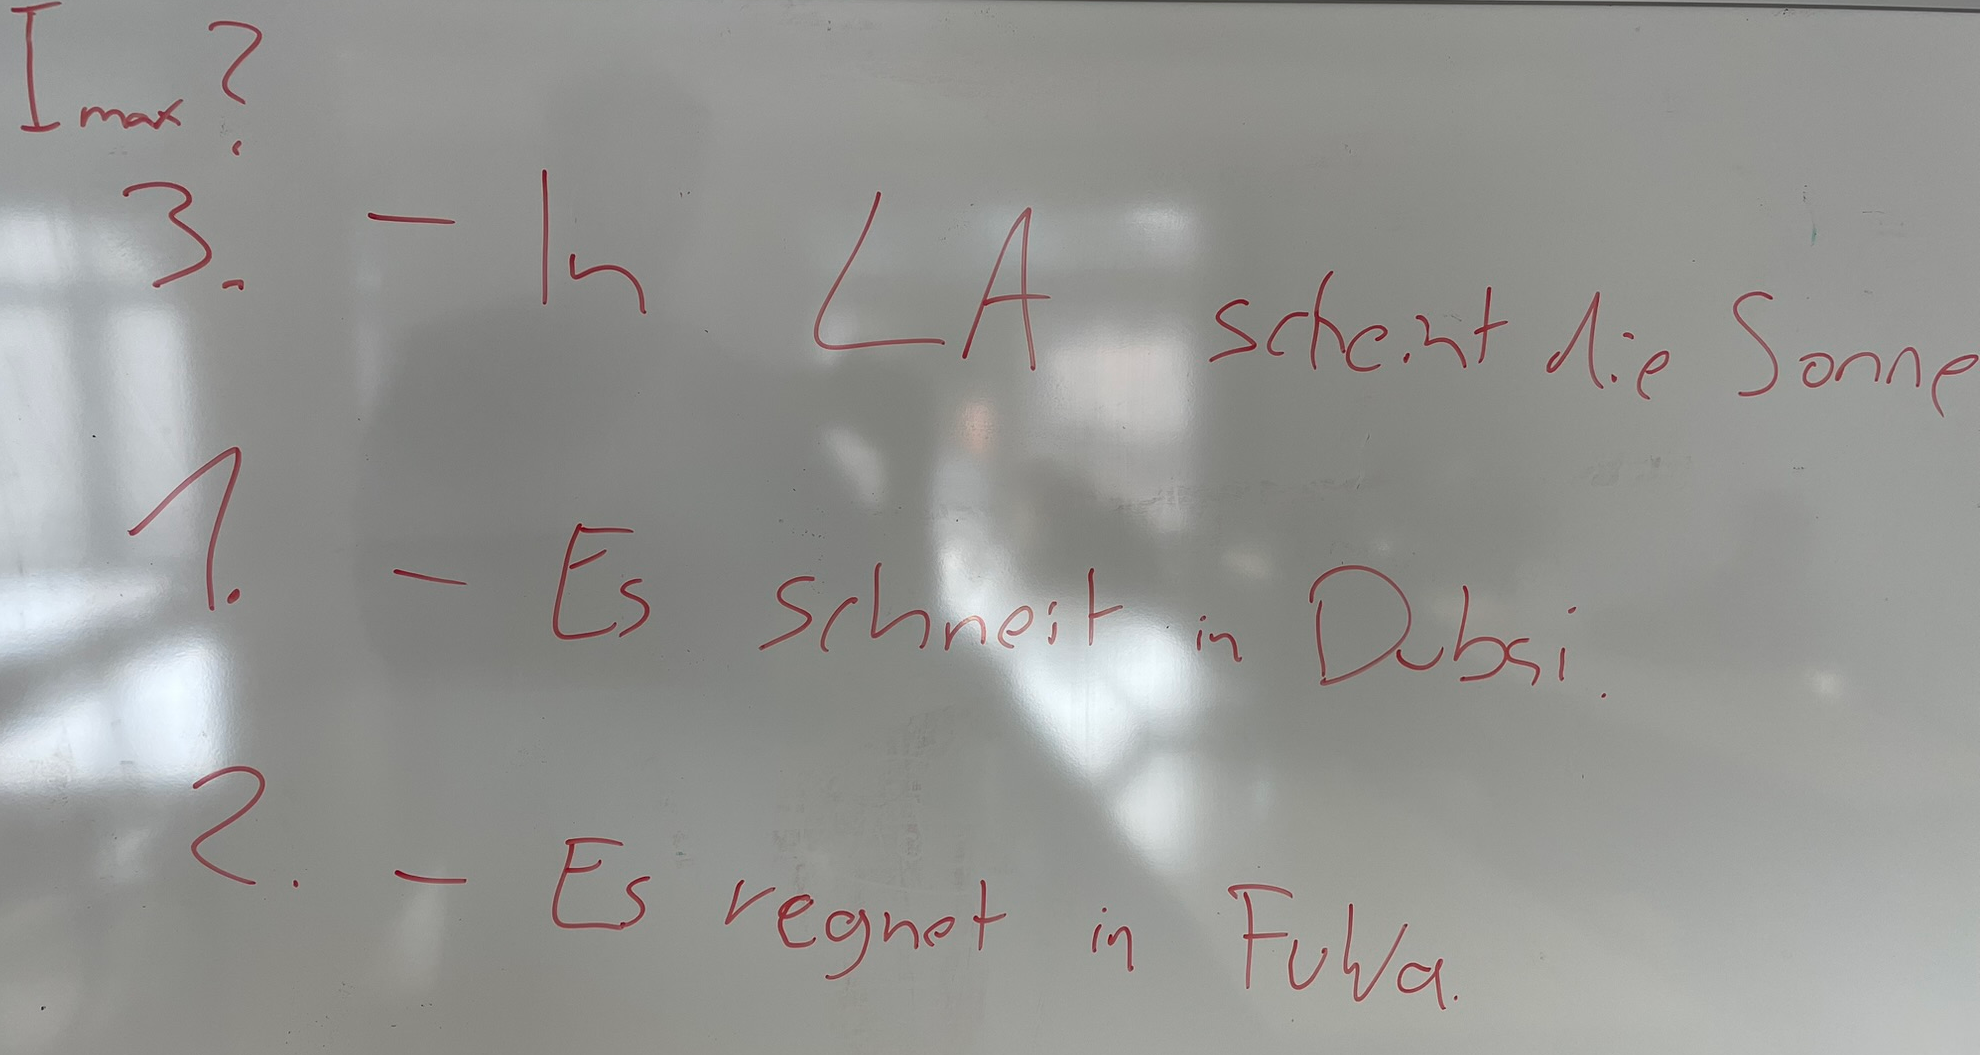 I max ?
3. - In LA scheint die Sonne
1. - Es schneit in Dubai.
2. - Es regnet in FuWa.